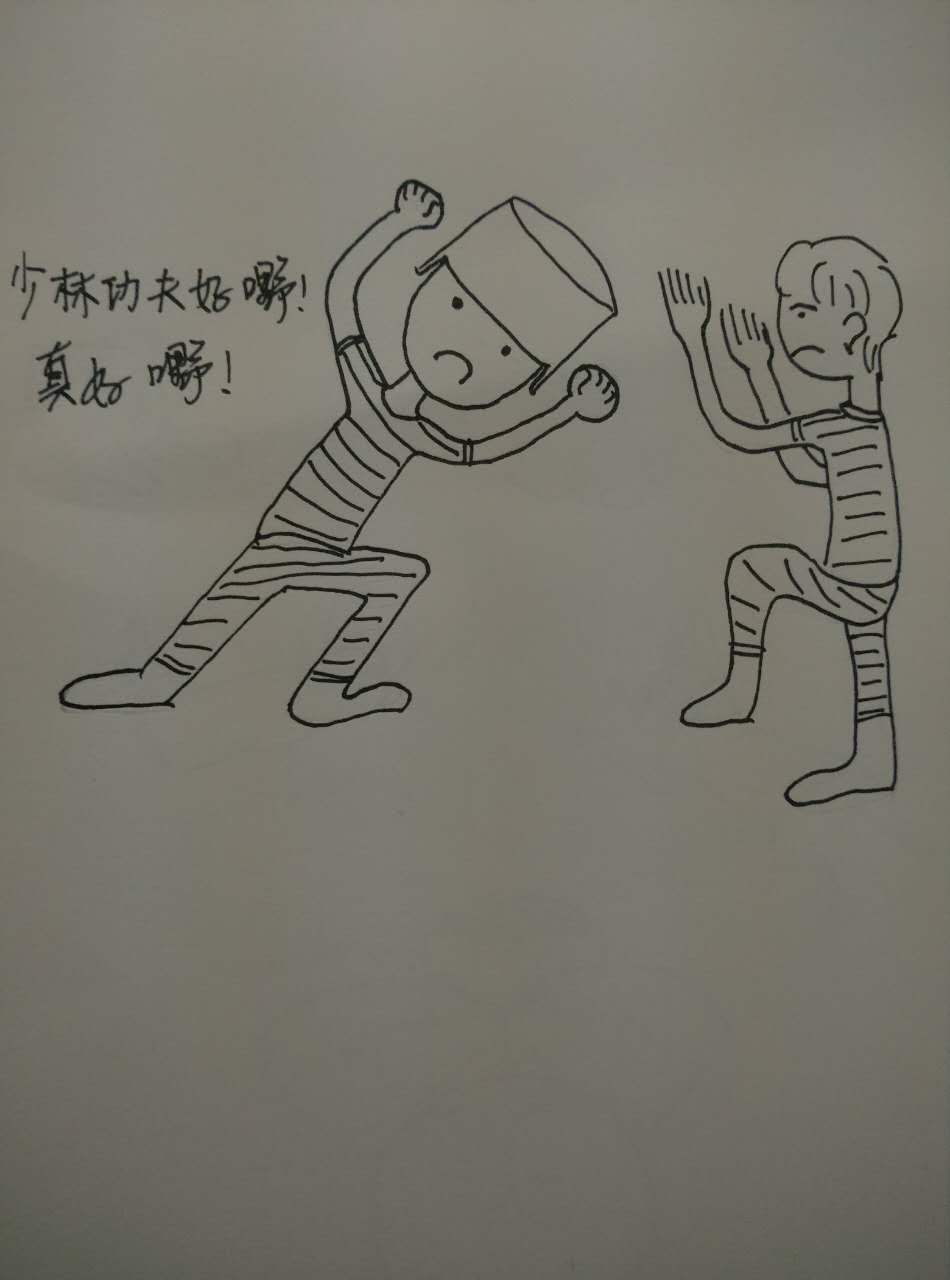 少林功夫好嘢!
真好嘢!